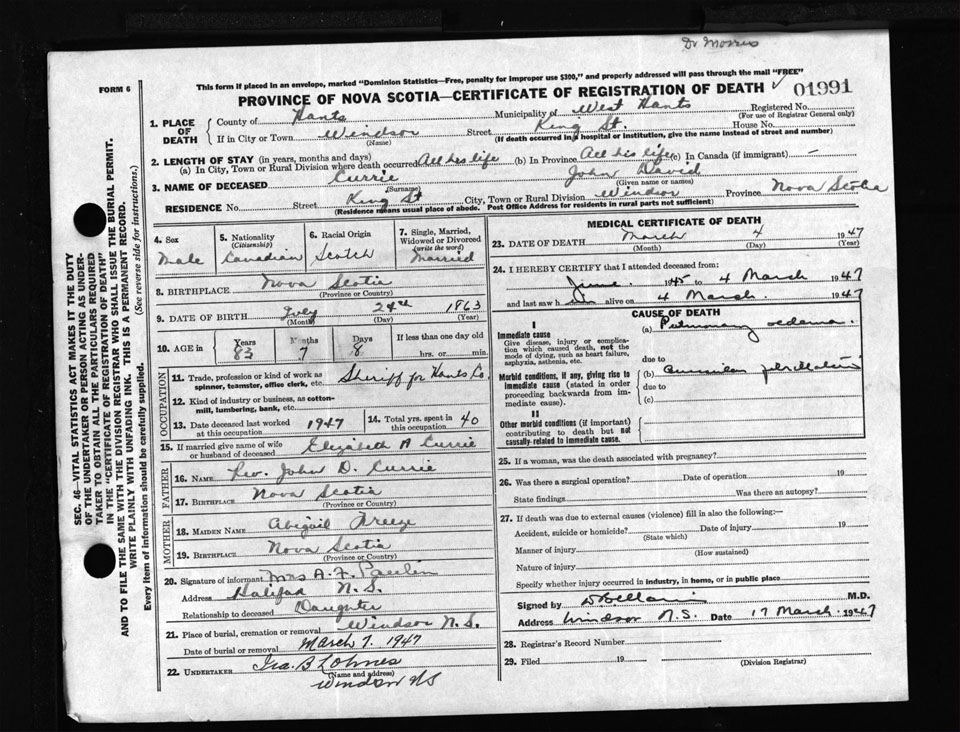 Dr Morris
This form if placed in an envelope, marked "Dominion Statistics—Free, penalty for improper use $300," and properly addressed will pass through the mail "FREE"
FORM 6
PROVINCE OF NOVA SCOTIA—CERTIFICATE OF REGISTRATION OF DEATH ✓ 01991
1. PLACE OF DEATH
County of Hants Municipality of West Hants Registered No.
(For use of Registrar General only)
If in City or Town Windsor Street King St. House No.
(Name) (If death occurred in a hospital or institution, give the name instead of street and number)
2. LENGTH OF STAY (in years, months and days)
(a) In City, Town or Rural Division where death occurred All his life (b) In Province All his life (c) In Canada (if immigrant) —
3. NAME OF DECEASED Currie John David
(Surname) (Given name or names)
RESIDENCE No. Street King St City, Town or Rural Division Windsor Province Nova Scotia
(Residence means usual place of abode. Post Office Address for residents in rural parts not sufficient)
4. Sex Male
5. Nationality (Citizenship) Canadian
6. Racial Origin Scotch
7. Single, Married, Widowed or Divorced (write the word) Married
8. BIRTHPLACE Nova Scotia
(Province or Country)
9. DATE OF BIRTH July 24th 1863
(Month) (Day) (Year)
10. AGE in Years Months Days If less than one day old
83 7 8 hrs. or min.
OCCUPATION
11. Trade, profession or kind of work as spinner, teamster, office clerk, etc. Sheriff for Hants Co.
12. Kind of industry or business, as cotton-mill, lumbering, bank, etc.
13. Date deceased last worked at this occupation 1947
14. Total yrs. spent in this occupation 40
15. If married give name of wife or husband of deceased Elizabeth A Currie
FATHER
16. NAME Rev. John D. Currie
17. BIRTHPLACE Nova Scotia
(Province or Country)
MOTHER
18. MAIDEN NAME Abigail Freeze
19. BIRTHPLACE Nova Scotia
(Province or Country)
20. Signature of informant Mrs A. F.
Address Halifax N.S.
Relationship to deceased Daughter
21. Place of burial, cremation or removal Windsor N.S.
Date of burial or removal March 7. 1947
22. UNDERTAKER Ira. B Lohnes
(Name and address)
Windsor NS
MEDICAL CERTIFICATE OF DEATH
23. DATE OF DEATH March 4 1947
(Month) (Day) (Year)
24. I HEREBY CERTIFY that I attended deceased from:
June. 1945 to 4 March 1947
and last saw him alive on 4 March. 1947
CAUSE OF DEATH
I
Immediate cause
Give disease, injury or complication which caused death, not the mode of dying, such as heart failure, asphyxia, asthenia, etc.
(a) Pulmonary oedema.
due to
Morbid conditions, if any, giving rise to immediate cause (stated in order proceeding backwards from immediate cause).
(b) Auricular fibrillation
due to
(c)
II
Other morbid conditions (if important) contributing to death but not causally-related to immediate cause.
25. If a woman, was the death associated with pregnancy?
26. Was there a surgical operation? Date of operation 19
State findings Was there an autopsy?
27. If death was due to external causes (violence) fill in also the following:
Accident, suicide or homicide? Date of injury 19
(State which)
Manner of injury
(How sustained)
Nature of injury
Specify whether injury occurred in industry, in home, or in public place
Signed by M.D.
Address Windsor N.S. Date 17 March 1947
28. Registrar's Record Number
29. Filed 19
(Division Registrar)
SEC. 46—VITAL STATISTICS ACT MAKES IT THE DUTY
OF THE UNDERTAKER OR PERSON ACTING AS UNDER-
TAKER TO OBTAIN ALL THE PARTICULARS REQUIRED
IN THE "CERTIFICATE OF REGISTRATION OF DEATH"
AND TO FILE THE SAME WITH THE DIVISION REGISTRAR WHO SHALL ISSUE THE BURIAL PERMIT.
WRITE PLAINLY WITH UNFADING INK. THIS IS A PERMANENT RECORD.
(See reverse side for instructions.)
Every item of information should be carefully supplied.